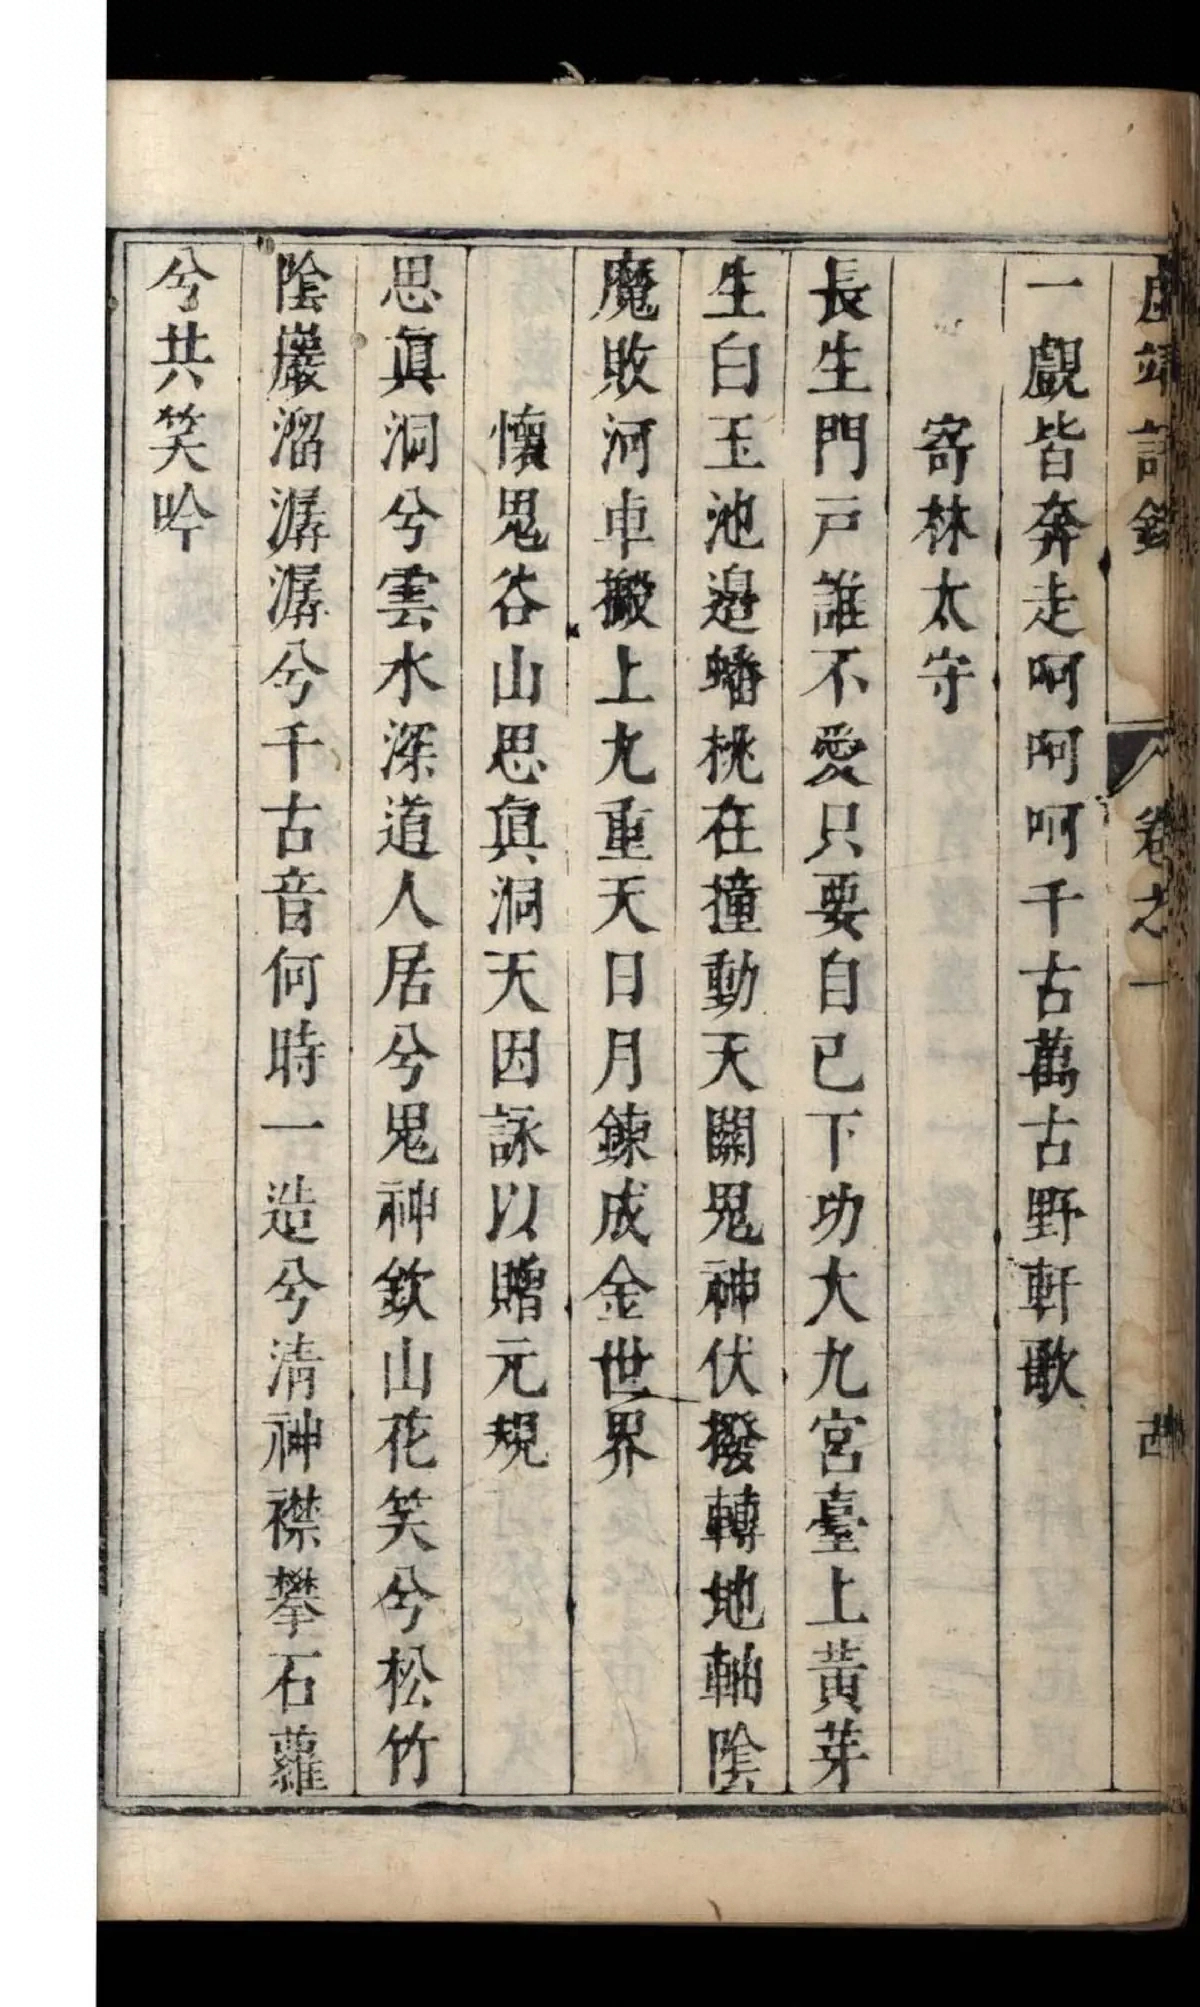 虛靖語錄 卷之一
一覷皆奔走呵呵呵千古萬古野軒歌
寄林太守
長生門戸誰不愛只要自已下功大九宮臺上黃芽
生白玉池邉蟠桃在撞動天關鬼神伏撥轉地軸陰
魔敗河車搬上九重天日月鍊成金世界
懷鬼谷山思眞洞天因詠以贈元規
思眞洞兮雲水深道人居兮鬼神欽山花笑兮松竹
陰巖溜潺潺兮千古音何時一造兮清神襟攀石蘿
兮共笑吟